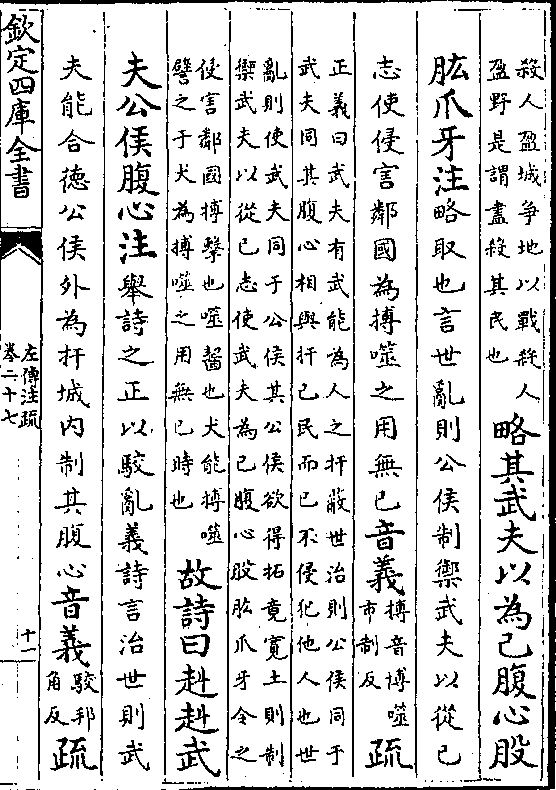 殺人盈城爭地以戰殺人
盈野是謂盡殺其民也
略其武夫以為己腹心股
肱爪牙注略取也言世亂則公侯制禦武夫以從己
志使侵害鄰國為搏噬之用無已音義
搏音博噬
市制反
疏
正義曰武夫有武能為人之扞蔽世治則公侯同于
武夫同其腹心相與扞己民而已不侵犯他人也世
亂則使武夫同于公侯其公侯欲得拓竟寛土則制
禦武夫以從己志使武夫為己腹心股肱爪牙令之
侵害鄰國搏擊也噬齧也犬能搏噬
譬之于犬為搏噬之用無已時也
故詩曰赳赳武
夫公侯腹心注舉詩之正以駮亂義詩言治世則武
夫能合德公侯外為扞城内制其腹心音義
駮邦
角反
疏
欽定四庫全書
左傳注疏
卷二十七
十一